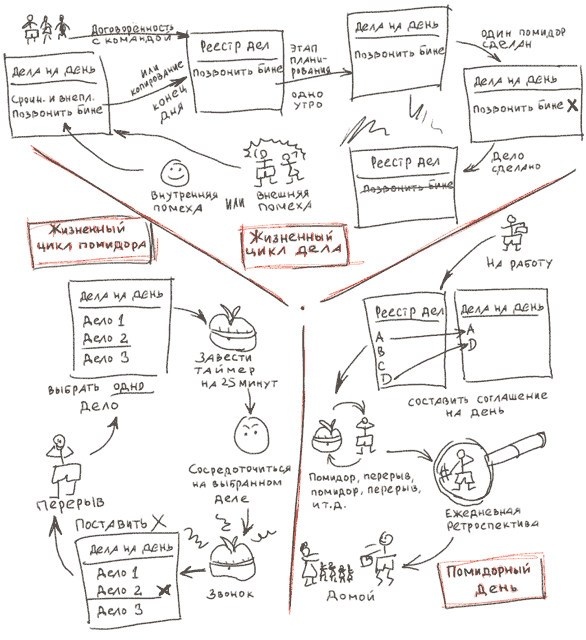 Договорённость
с командой
Дела на день
Срочн. и внепл.
Позвонить Бине
или
копирование
конец
дня
Реестр дел
Позвонить Бине
этап
плани-
рования
одно
утро
Дела на день
Позвонить Бине
один помидор
сделан
Дела на день
Позвонить Бине X
Дело
сделано
Реестр дел
Позвонить Бине
Внутренняя
помеха
или
Внешняя
помеха
Жизненный
цикл помидора
Жизненный
цикл дела
Дела на день
Дело 1
Дело 2
Дело 3
выбрать одно
дело
Завести
таймер
на 25 минут
Сосредоточиться
на выбранном
деле
Звонок
Поставить X
Дела на день
Дело 1
Дело 2 X
Дело 3
Перерыв
На работу
Реестр дел
A
B
C
D
Дела на день
A
D
составить соглашение
на день
Помидор, перерыв,
помидор, перерыв,
и т.д.
Ежедневная
Ретроспектива
Домой
Помидорный
День